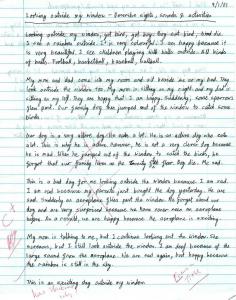 9/1/01
Looking outside my window - Describe sights, sounds & activities
Looking outside my window, get bird, get dog; they eat bird, bird die
I see a rainbow outside. It is very colourful. I am happy because it
is very beautiful. I see children playing with balls outside. All kinds
of balls. Football, basketball, baseball, fullball.
My mom and dad come into my room and sit beside me on my bed. They
look outside the window too. My mom is sitting on my right and my dad is
sitting on my left. They are happy that I am happy. Suddenly, some sparrows
flew past. Our family dog has jumped out of the window to catch some
birds.
Our dog is a very active dog. He eats a lot. He is an active dog who eats
a lot. This is why he is active. However, he is not a very clever dog because
he is mad. When he jumped out of the window to catch the birds, he
forgot that our family lives on the floor. Our dog dies. He
This is a bad day for me looking outside the window because I am sad.
I am sad because my parents just bought the dog yesterday. We are
sad. Suddenly an aeroplane flies past the window. We forget about our
dog and are very surprised because we have never seen an aeroplane
before. As a result, we are happy because the aeroplane is exciting.
My mom is talking to me, but I continue looking out the window. She
but I still look outside the window. I am deaf because of the
large sound from the aeroplane. We are sad again, but happy because
the rainbow is still in the sky.
This is an exciting day outside my window.
C+